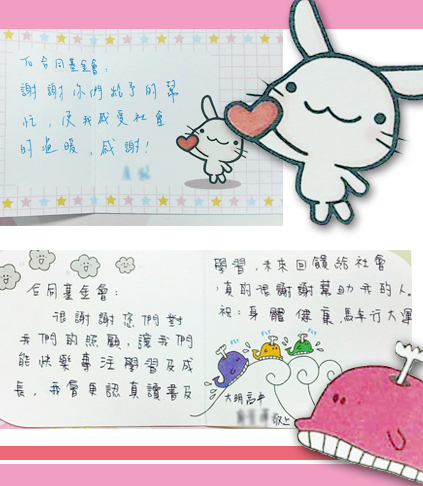 To 合同基金會,
謝謝你們給予的幫
忙，使我感受社會
的溫暖，感謝！
合同基金會：
很謝謝您們對
我們的照顧，讓我們
能快樂專注學習及成
長，我會更認真讀書及
學習，未來回饋給社會
，真的很謝謝幫助我的人。
祝：身體健康，馬年行大運
FLY FLY FLY
大明高中
敬上